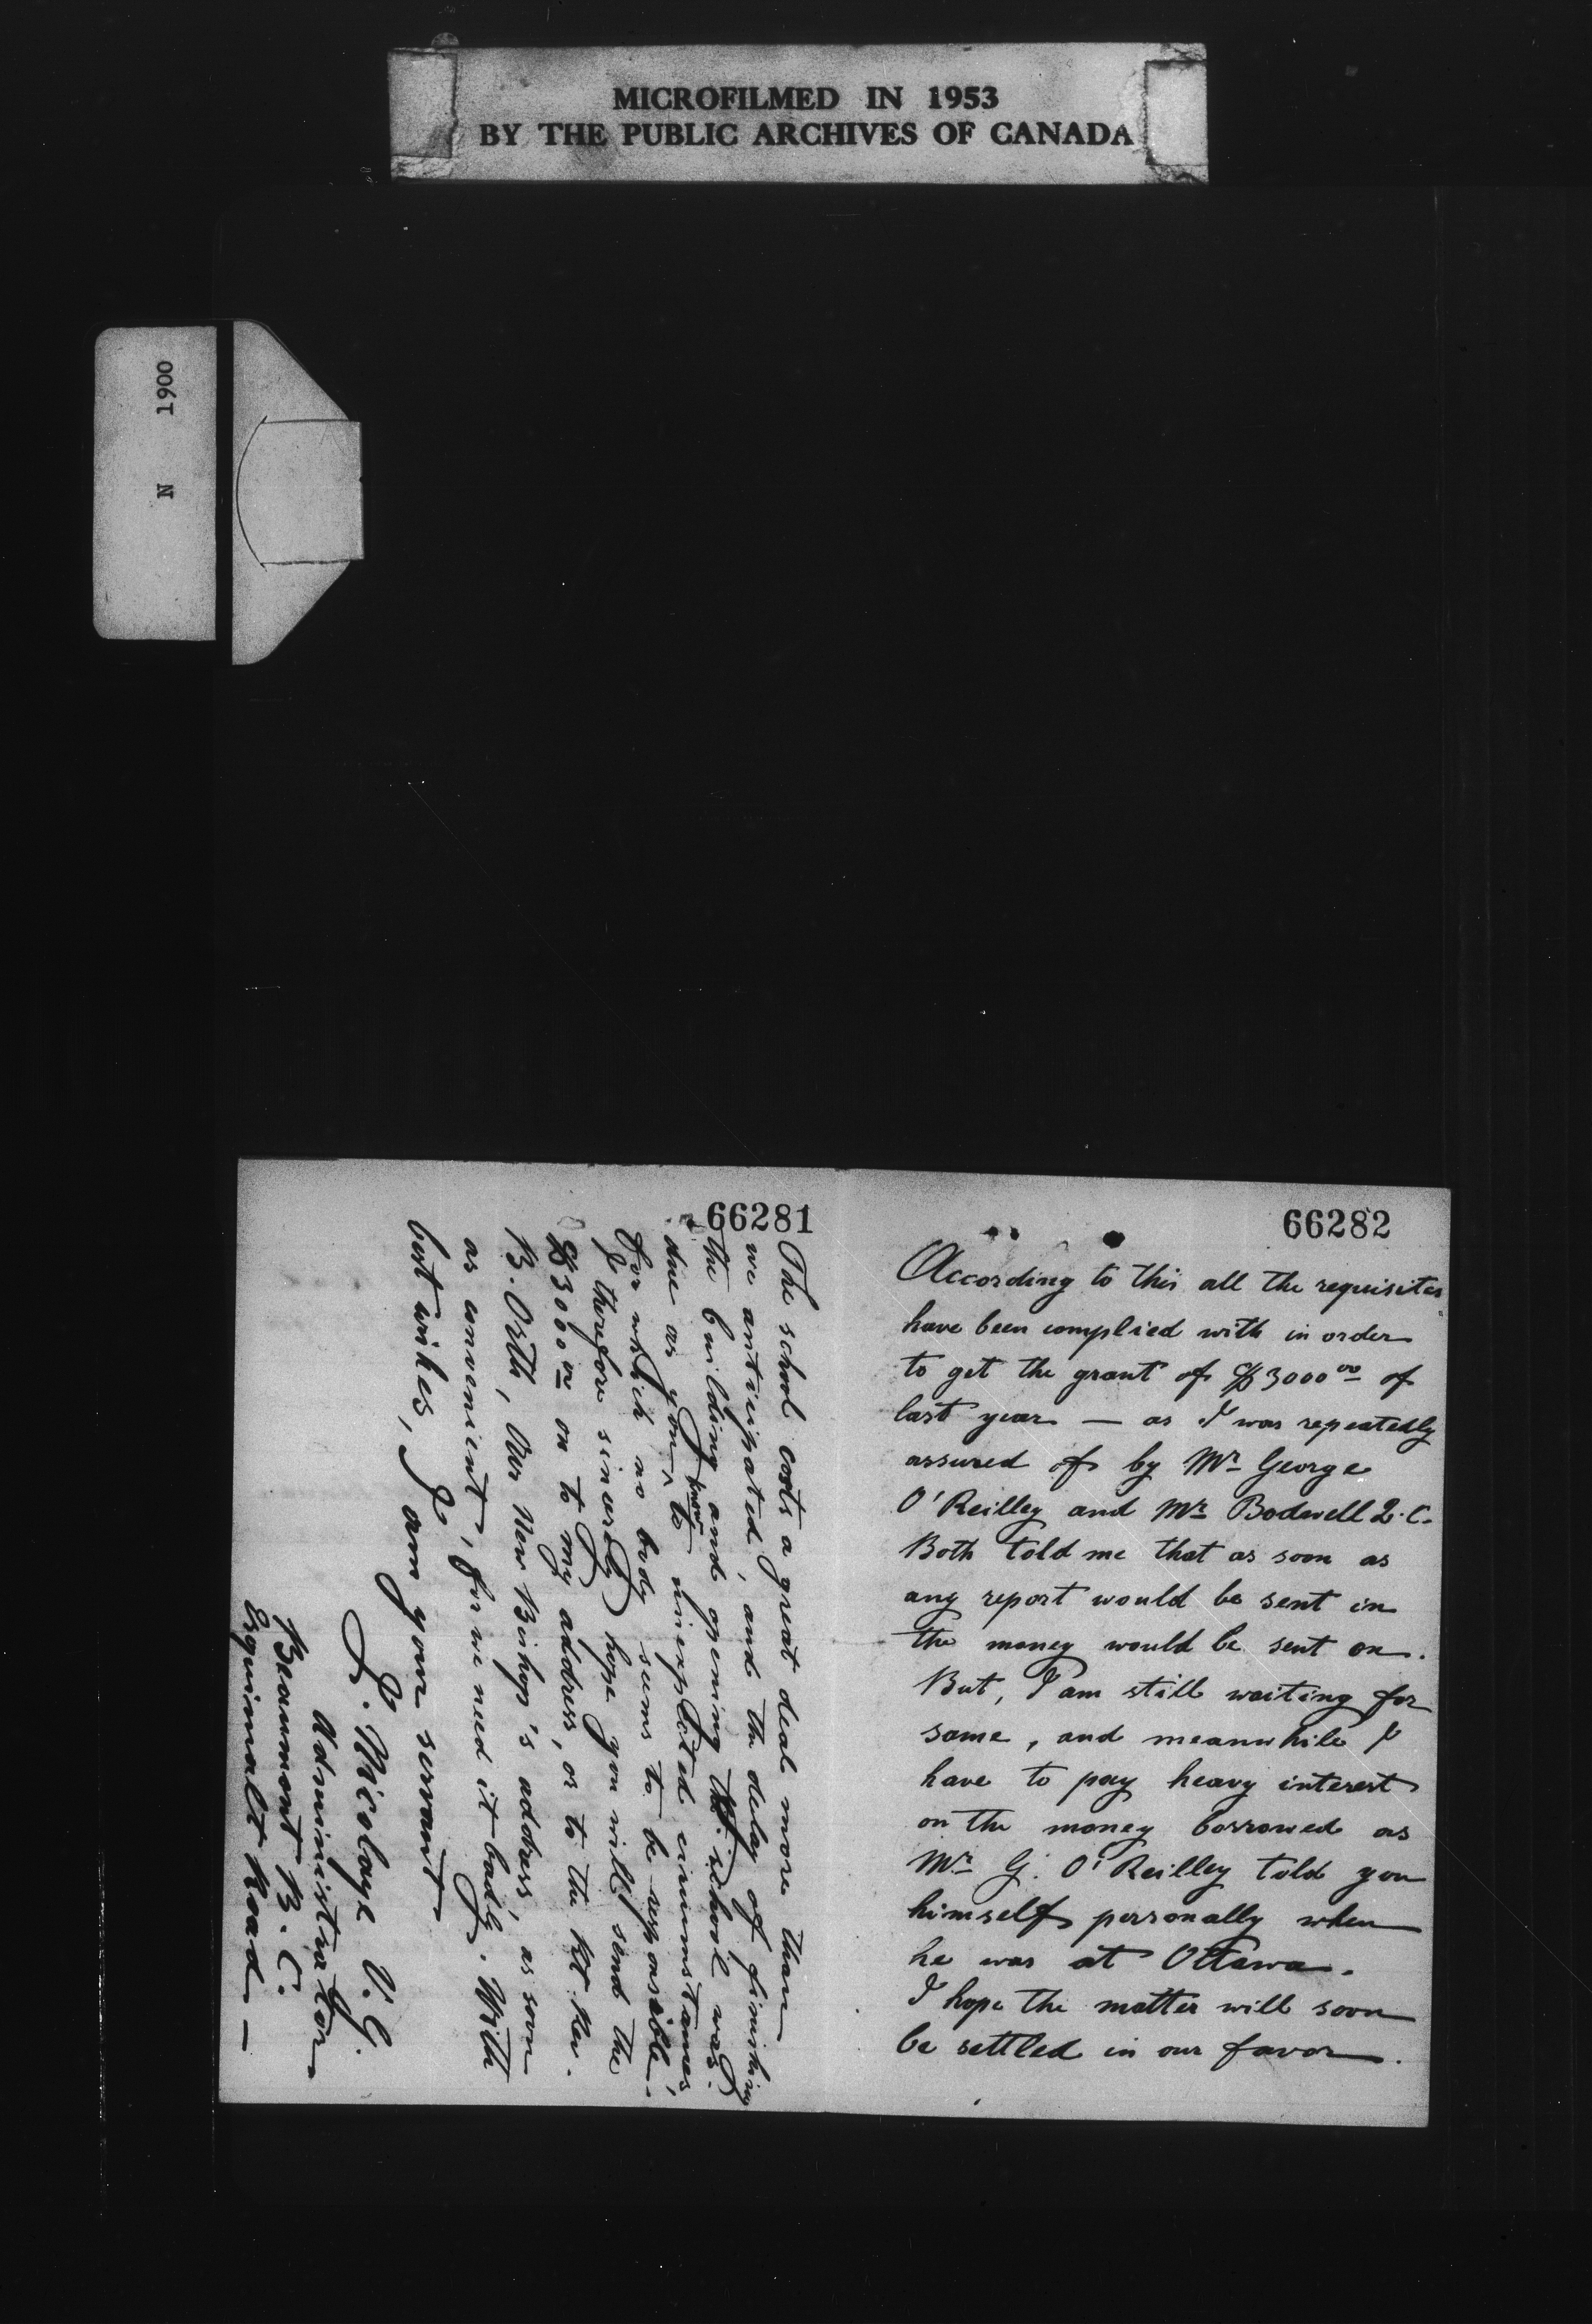 MICROFILMED IN 1953
BY THE PUBLIC ARCHIVES OF CANADA
N 1900
66281
The school costs a great deal more than
we anticipated, and the delay of finishing
the building and opening the school was
due as you know to unexpected circumstances,
for which no body seems to be responsible.
I therefore sincerely hope you will send the
$3000.00 on to my address, or to the Rt. Rev.
B. Orth, Our New Bishop's address, as soon
as convenient, for we need it badly. With
best wishes, I am your servant
J. Nicolaye V.G.
Administrator
Beaumont B.C.
Esquimalt Road —
66282
According to this all the requisites
have been complied with in order
to get the grant of $3000.00 of
last year — as I was repeatedly
assured of by Mr George
O'Reilley and Mr Bodwell Q.C.
Both told me that as soon as
any report would be sent in
the money would be sent on.
But, I am still waiting for
same, and meanwhile I
have to pay heavy interest
on the money borrowed as
Mr G. O'Reilley told you
himself personally when
he was at Ottawa.
I hope the matter will soon
be settled in our favor.